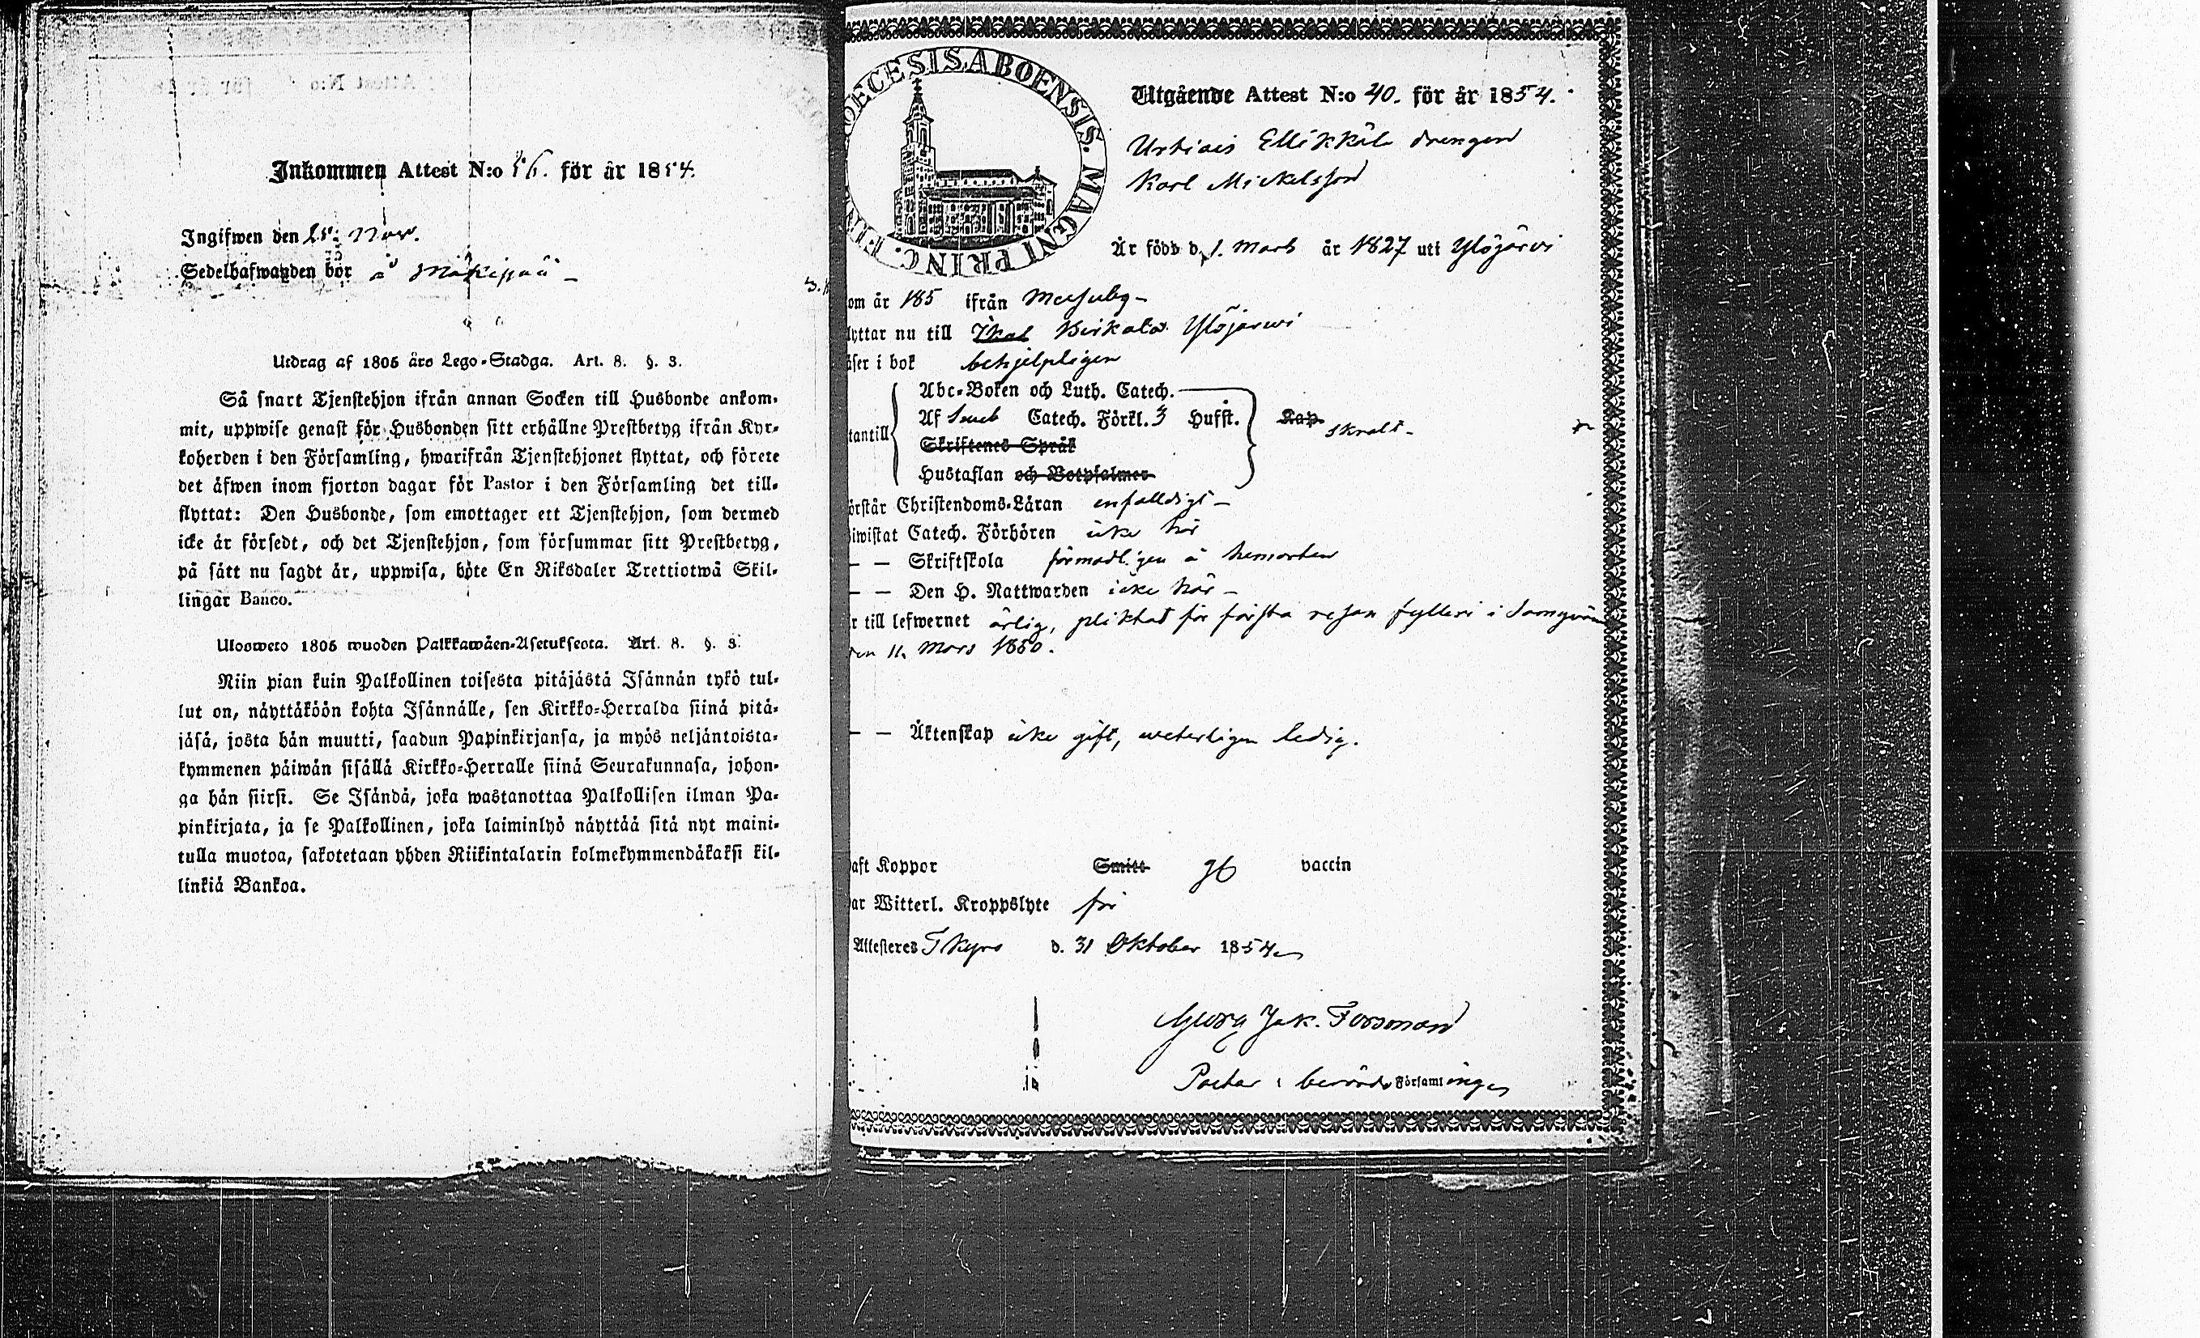 Inkommen Attest N:o 56. för år 1854.
Ingifwen den 25. Nov.
Sedelhafwanden bor å Mäkipää –
Utdrag af 1805 års Lego-Stadga. Art. 8. §. 3.
Så snart Tjenstehjon ifrån annan Socken till Husbonde ankom-
mit, uppwise genast för Husbonden sitt erhållne Prestbetyg ifrån Kyr-
koherden i den Församling, hwarifrån Tjenstehjonet flyttat, och förete
det äfwen inom fjorton dagar för Pastor i den Församling det till-
flyttat: Den Husbonde, som emottager ett Tjenstehjon, som dermed
icke är försedt, och det Tjenstehjon, som försummar sitt Prestbetyg,
på sätt nu sagdt är, uppwisa, böte En Riksdaler Trettiotwå Skil-
lingar Banco.
Ulosweto 1805 wuoden Palkkawäen-Asetuksesta. Art. 8. §. 3.
Niin pian kuin Palkollinen toisesta pitäjästä Isännän tykö tul-
lut on, näyttäköön kohta Isännälle, sen Kirkko-Herralda siinä pitä-
jäsä, josta hän muutti, saadun Papinkirjansa, ja myös neljäntoista-
kymmenen päiwän sisällä Kirkko-Herralle siinä Seurakunnasa, johon-
ga hän siirsi. Se Isändä, joka wastanottaa Palkollisen ilman Pa-
pinkirjata, ja se Palkollinen, joka laiminlyö näyttää sitä nyt maini-
tulla muotoa, sakotetaan yhden Riikintalarin kolmekymmendäkaksi kil-
linkiä Bankoa.
OECESIS ABOENSIS. MAGNI PRINC. FIN
Utgående Attest N:o 40. för år 1854.
Ellikkälä drengen
Karl Mickelsson
Är född d. 1. Mars år 1827 uti Ylöjärvi
om år 185 ifrån
lyttar nu till Birkala Ylöjärwi
äser i bok behjelpligen
tantill
Abc-Boken och Luth. Catech.
Af Catech. Förkl. 3 Hufst.
Skriftenes Språk
Hustaflan och Botpsalmer
Kap.
örstår Christendoms-Läran enfaldigt –
iwistat Catech. Förhören icke här
– – Skriftskola förmodligen å hemorten
– – Den H. Nattwarden icke här –
r till lefwernet ärlig, pliktat för första resan fylleri i
den 11. Mars 1850.
– – Äktenskap icke gift, weterligen ledig.
aft Koppor Smitt vaccin
ar Witterl. Kroppslyte fri
Attesteras T Kyro d. 31 Oktober 1854
Georg Jak. Forsman
Pastor i berörde Församlingen